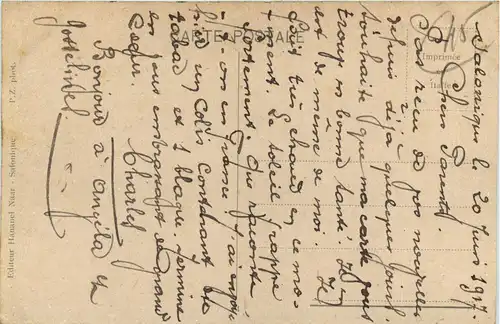 CARTE POSTALE
Salonique le 20 Juin 1917.
Chers Parents
Pas reçu de vos nouvelles
depuis déjà quelques jours.
Souhaite que ma carte vous
trouve en bonne santé. Il en
est de même de moi.
fait très chaud en ce mo-
ment. Le soleil frappe
fortement. Que raconte
on en France. J'ai envoyé
hier un colis contenant
tabac et 1 blague. Termine
en vous embrassant de grand
cœur.
Charles
Bonjour à Angéla et
Editeur Hananel Naar - Salonique. P.Z. phot.
Imprimée
Italie